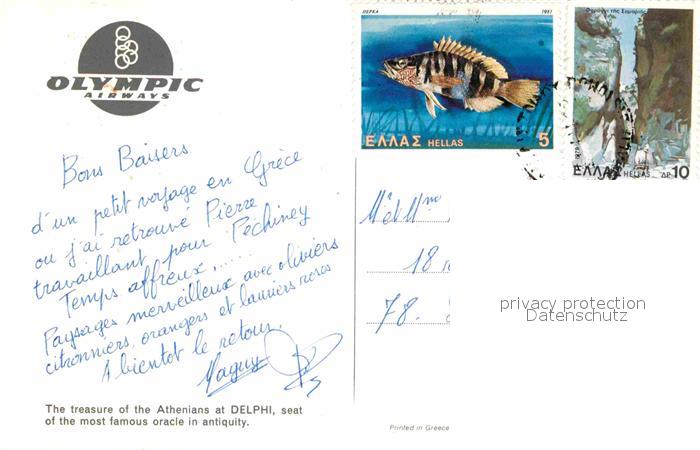 OLYMPIC
AIRWAYS
ΠΕΡΚΑ 1981
ΕΛΛΑΣ HELLAS 5
Φαράγγι της Σαμαριάς
ΕΛΛΑΣ HELLAS ΔΡ 10
1979
Bons Baisers
d'un petit voyage en Grèce
où j'ai retrouvé Pierre
travaillant pour Péchiney
Temps affreux,.....
Paysages merveilleux avec oliviers
citronniers, orangers et lauriers roses
A bientot le retour.
Maguy
M et Mme
18
78.
privacy protection
Datenschutz
The treasure of the Athenians at DELPHI, seat
of the most famous oracle in antiquity.
Printed in Greece